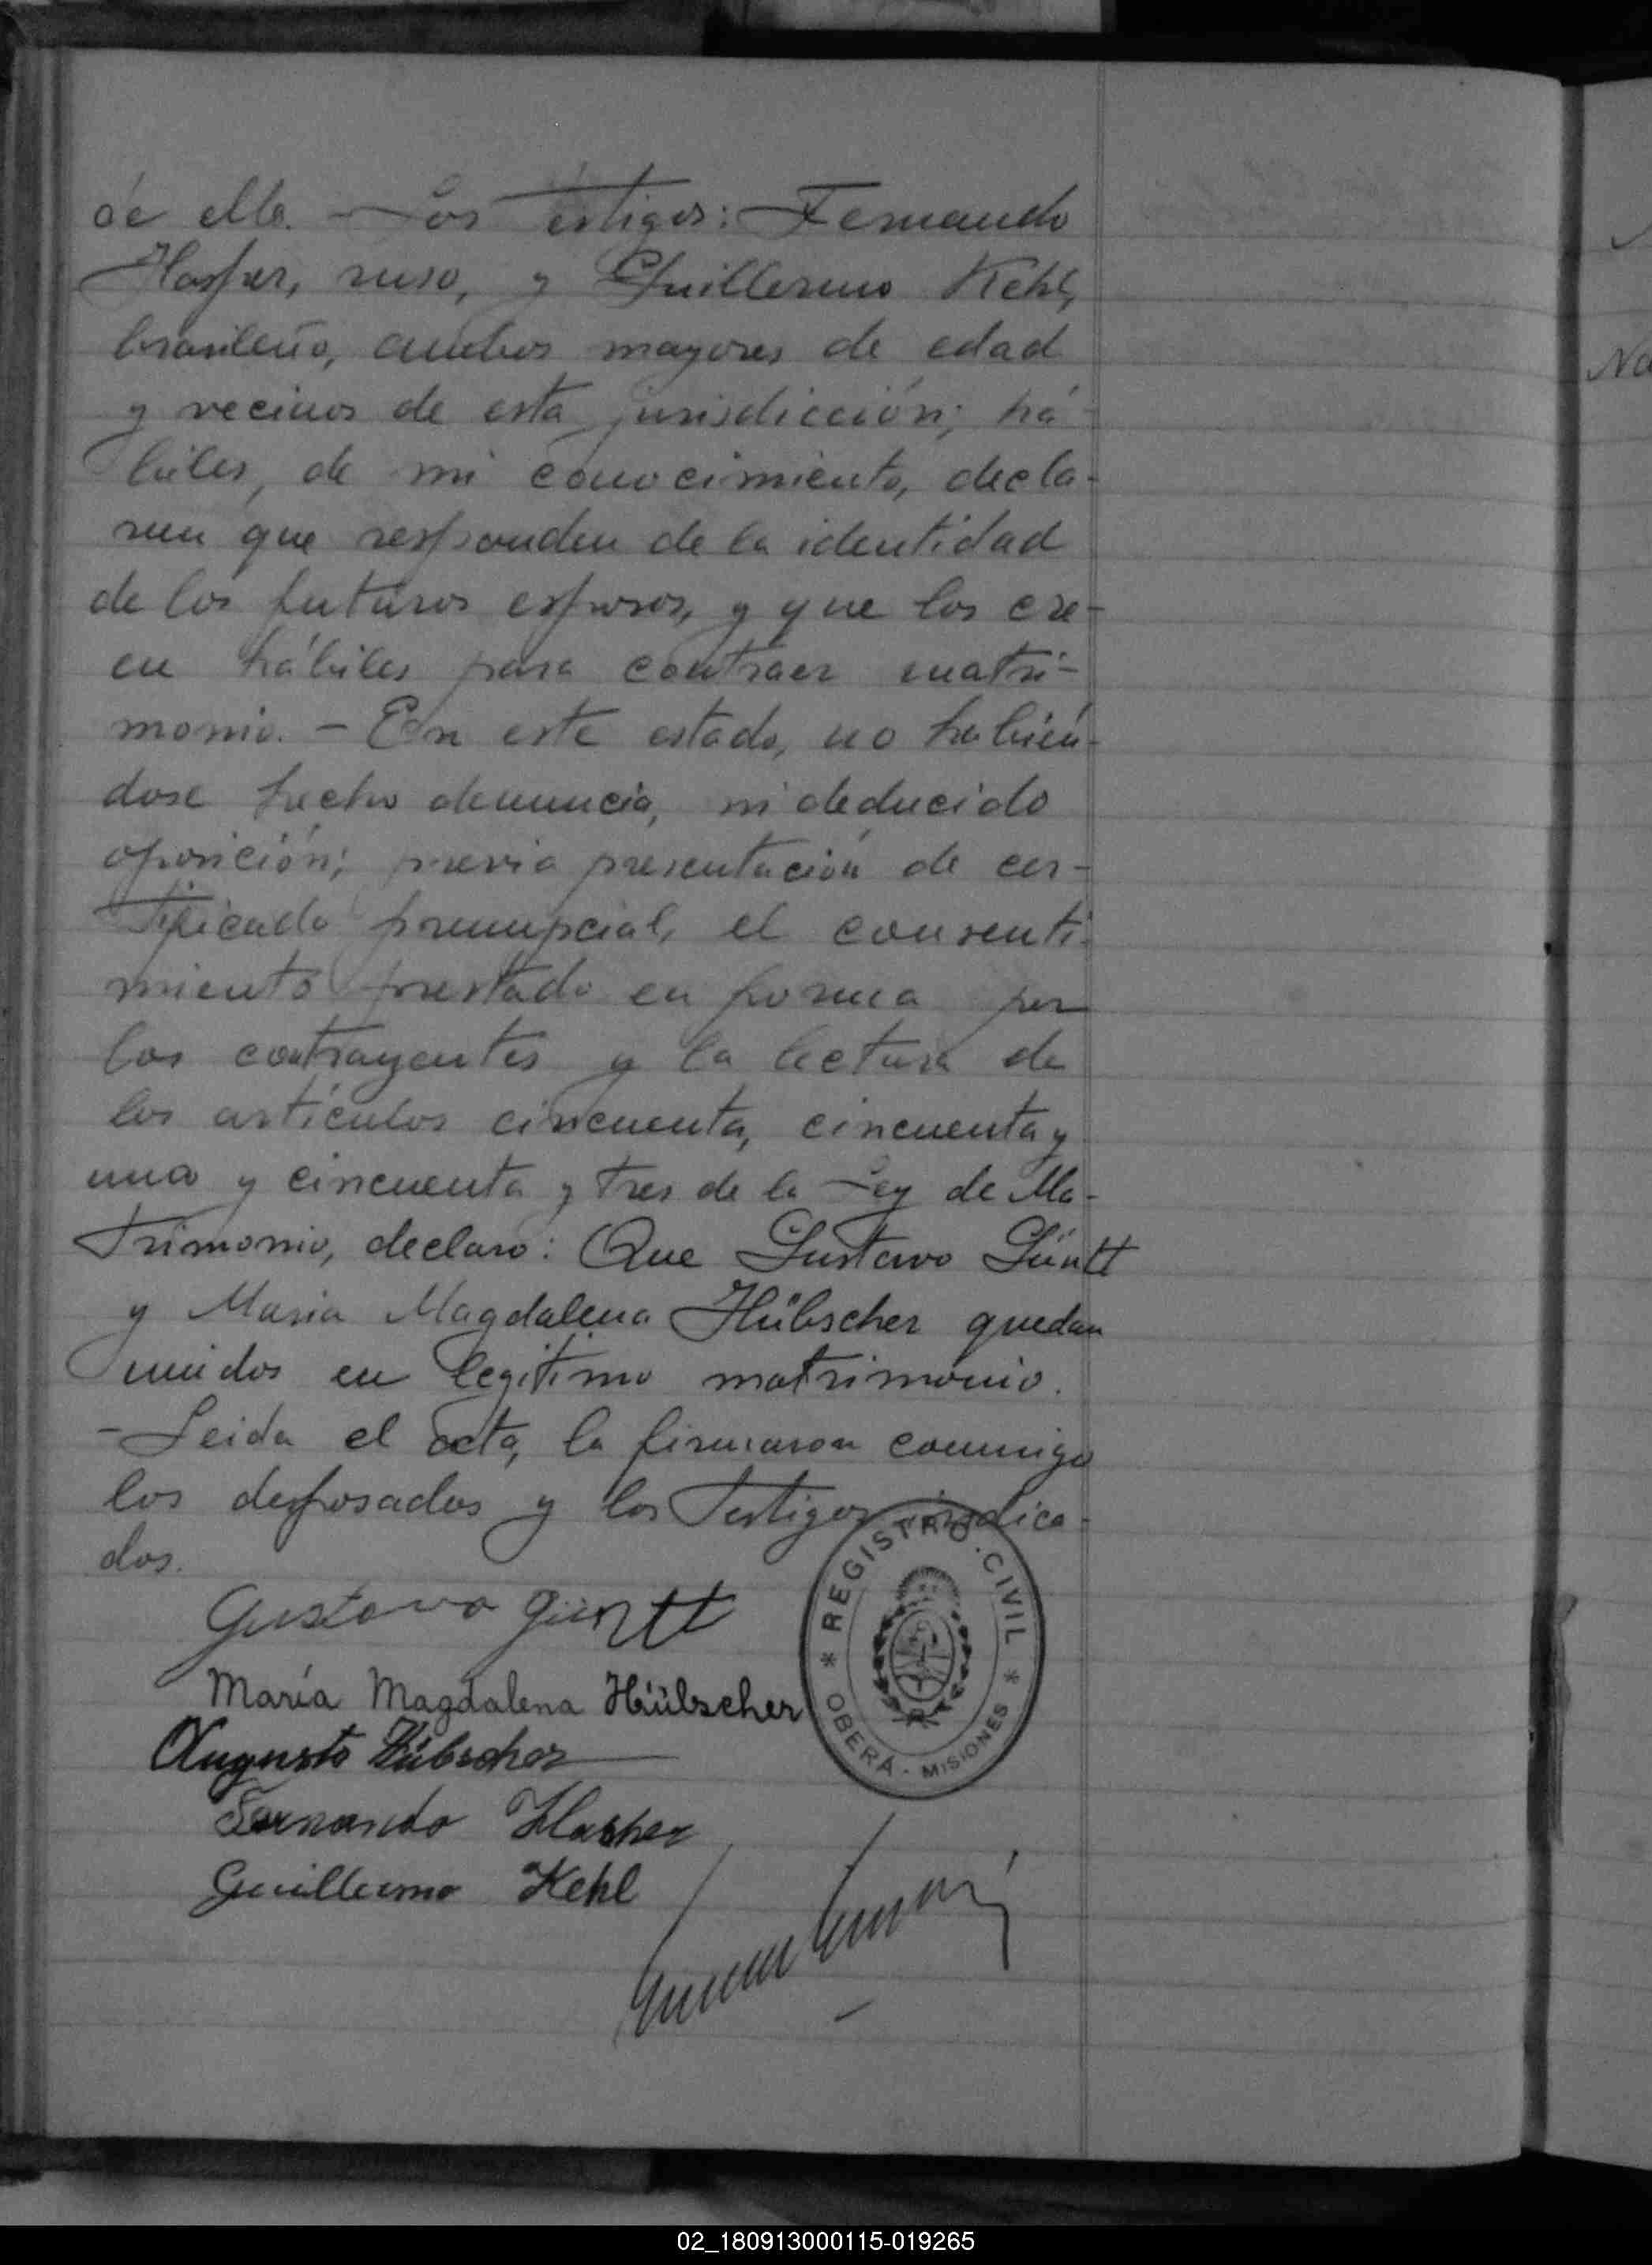 de ella. - Los testigos: Fernando
Hasper, ruso, y Guillermo Kehl,
brasileño, ambos mayores de edad
y vecinos de esta jurisdicción; há-
biles, de mi conocimiento, decla-
ran que responden de la identidad
de los futuros esposos, y que los cre-
en hábiles para contraer matri-
monio. - En este estado, no habién-
dose hecho denuncia, ni deducido
oposición; previa presentación de cer-
tificado prenupcial, el consenti-
miento prestado en forma por
los contrayentes y la lectura de
los artículos cincuenta, cincuenta y
uno y cincuenta y tres de la Ley de Ma-
trimonio, declaro: Que Gustavo Güntt
y Maria Magdalena Hübscher quedan
unidos en legitimo matrimonio.
- Leida el acta, la firmaron conmigo
los desposados y los testigos indica-
dos.
Gustavo Güntt
María Magdalena Hübscher
Augusto Hübscher
Fernando Hasper
Guillermo Kehl
* REGISTRO CIVIL *
OBERÁ - MISIONES
Na
02_180913000115-019265